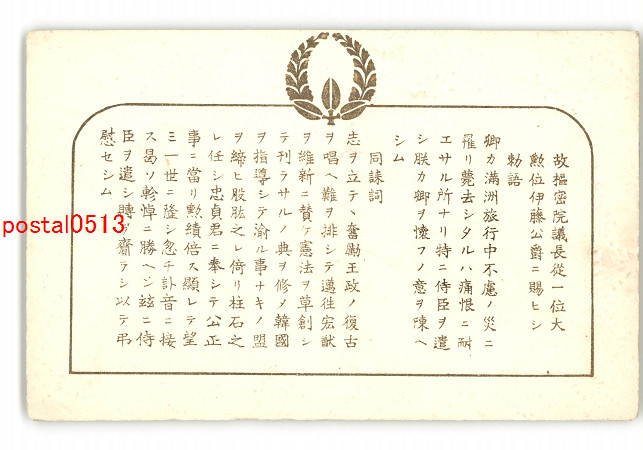 故樞密院議長從一位大
勲位伊藤公爵ニ賜ヒシ
勅語
卿カ滿洲旅行中不慮ノ災ニ
罹リ薨去シタルハ痛恨ニ耐
エサル所ナリ特ニ侍臣ヲ遣
シ朕カ卿ヲ懷フノ意ヲ陳ヘ
シム
同誄詞
志ヲ立テヽ奮勵王政ノ復古
ヲ唱ヘ難ヲ排シテ邁徃宏猷
ヲ維新ニ賛ケ憲法ヲ草創シ
テ刊ラサルノ典ヲ修メ韓國
ヲ指導シテ渝ル事ナキノ盟
ヲ締ヒ股肱之レ倚リ柱石之
レ任シ忠貞君ニ奉シテ公正
事ニ當リ勲績倍ス顯レテ望
ミ一世ニ隆シ忽チ訃音ニ接
ス曷ソ軫悼ニ勝ヘン玆ニ侍
臣ヲ遣シ賻ヲ齎ラシ以テ弔
慰セシム
postal0513
postal0513